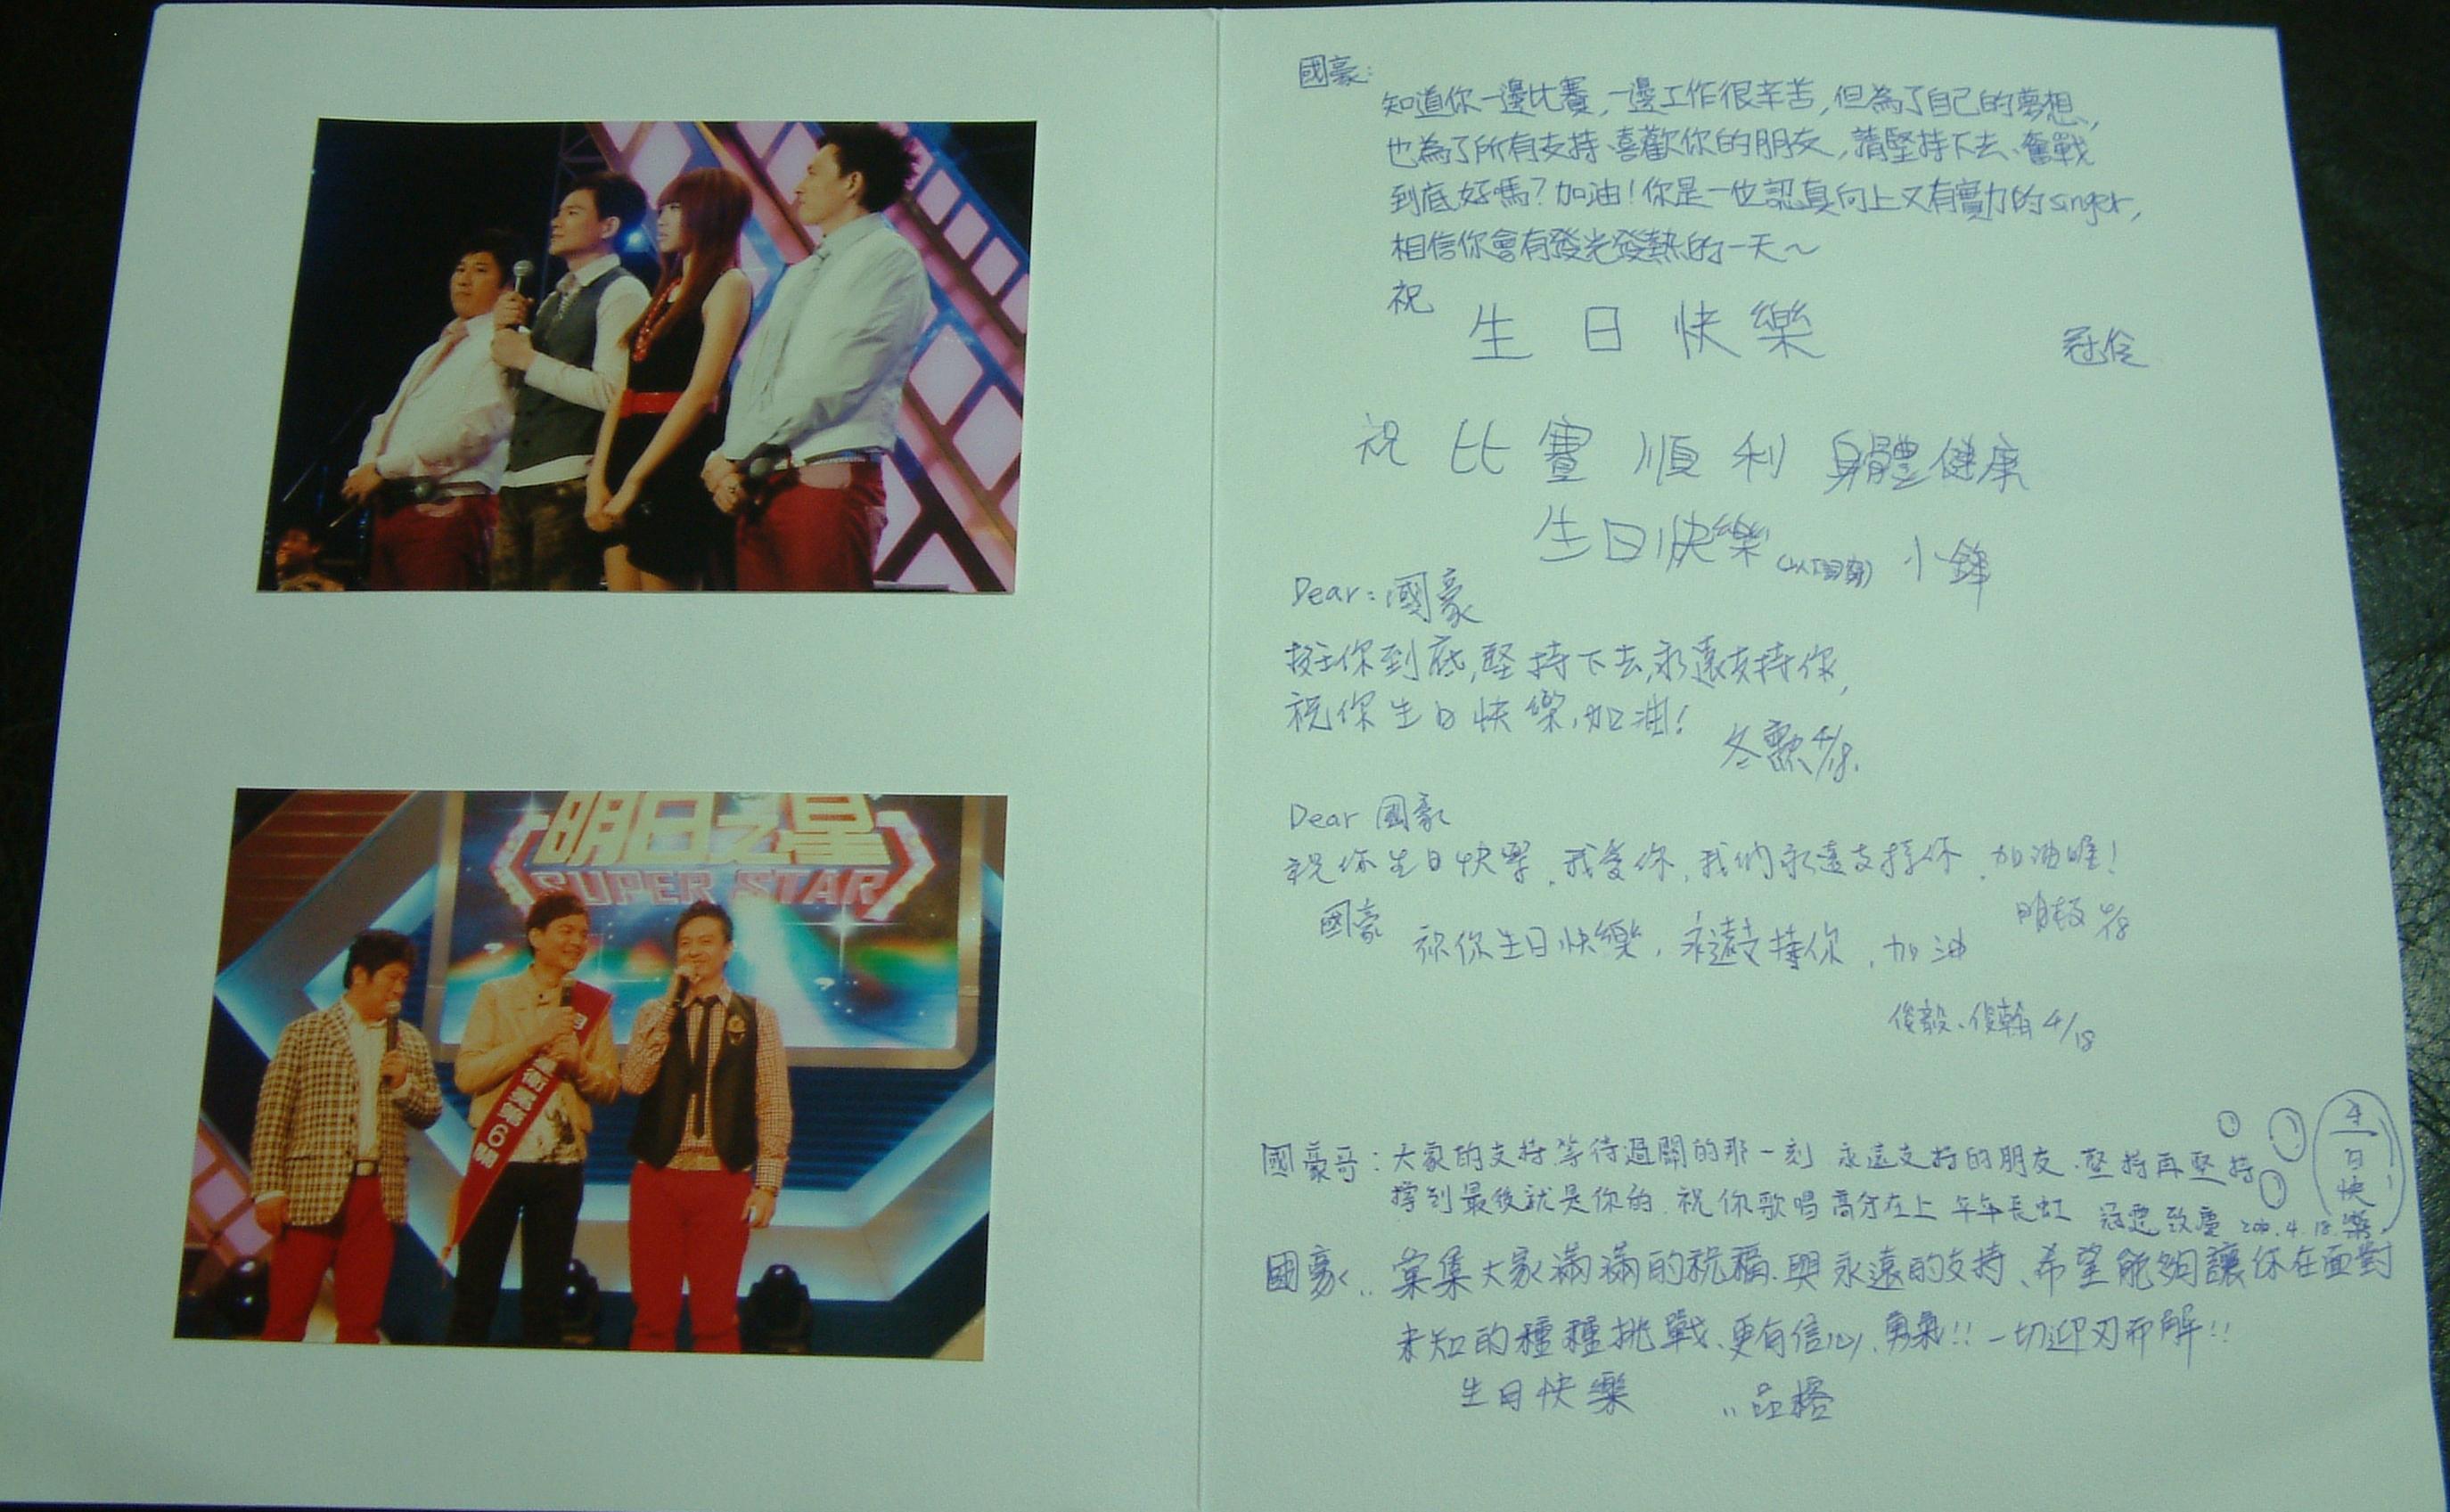 明日之星
SUPER STAR
國豪:
知道你一邊比賽,一邊工作很辛苦,但為了自己的夢想,
也為了所有支持、喜歡你的朋友,請堅持下去、奮戰
到底好嗎?加油!你是一位認真向上又有實力的singer,
相信你會有發光發熱的一天~
祝
生日快樂
冠伶
祝 比賽順利 身體健康
生日快樂 小鋒
Dear:國豪
挺你到底,堅持下去,永遠支持你,
祝你生日快樂,加油!
4/18.
Dear 國豪
祝你生日快樂,我愛你,我們永遠支持你,加油喔!
4/18
國豪 祝你生日快樂,永遠支持你,加油
俊毅、俊翰 4/18
生日快樂
國豪哥:大家的支持等待過關的那一刻 永遠支持的朋友.堅持再堅持
撐到最後就是你的.祝你歌唱高分在上 年年長虹 致慶 4.18
國豪..彙集大家滿滿的祝福、與永遠的支持、希望能夠讓你在面對
未知的種種挑戰、更有信心、勇氣!!一切迎刃而解!!
生日快樂 ..品榕